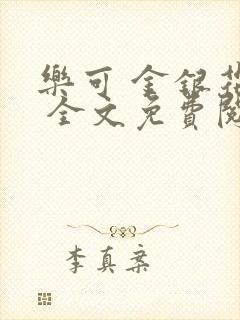 樂可 金銀花
全文免費閱
李真案